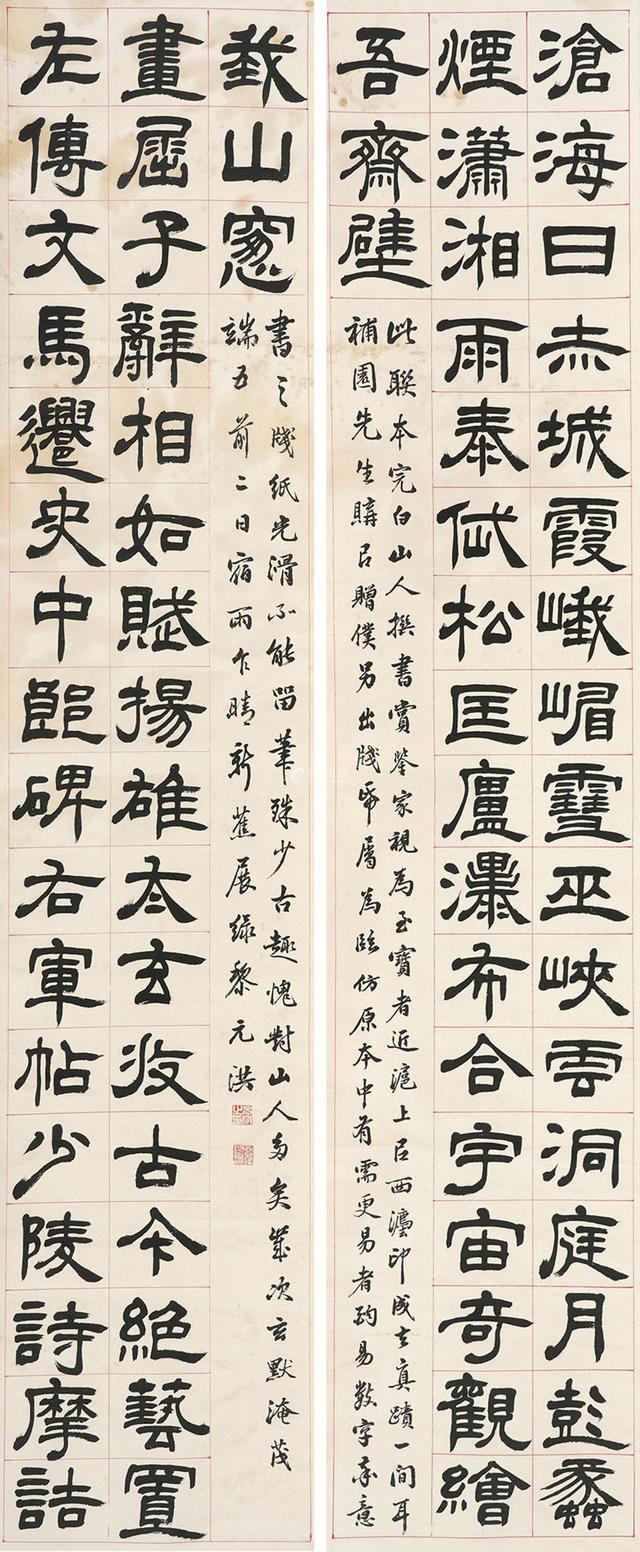 滄海日赤城霞峨嵋雪巫峽雲洞庭月彭蠡
煙瀟湘雨泰岱松匡廬瀑布合宇宙奇觀繪
吾齋壁
此聯本完白山人撰書賞鑒家視為至寶者近滬上㠯西灋印成去真蹟一間耳
補園先生購㠯贈僕另出牋帋屬為臨仿原本中有需更易者酌易數字
左傳文馬遷史中郎碑右軍帖少陵詩摩詰
畫屈子辭相如賦揚雄太玄收古今絕藝置
我山窻
書之牋紙光滑不能留筆殊少古趣愧對山人多矣歲次玄默淹茂
端五前二日宿雨乍晴新蕉展綠黎元洪